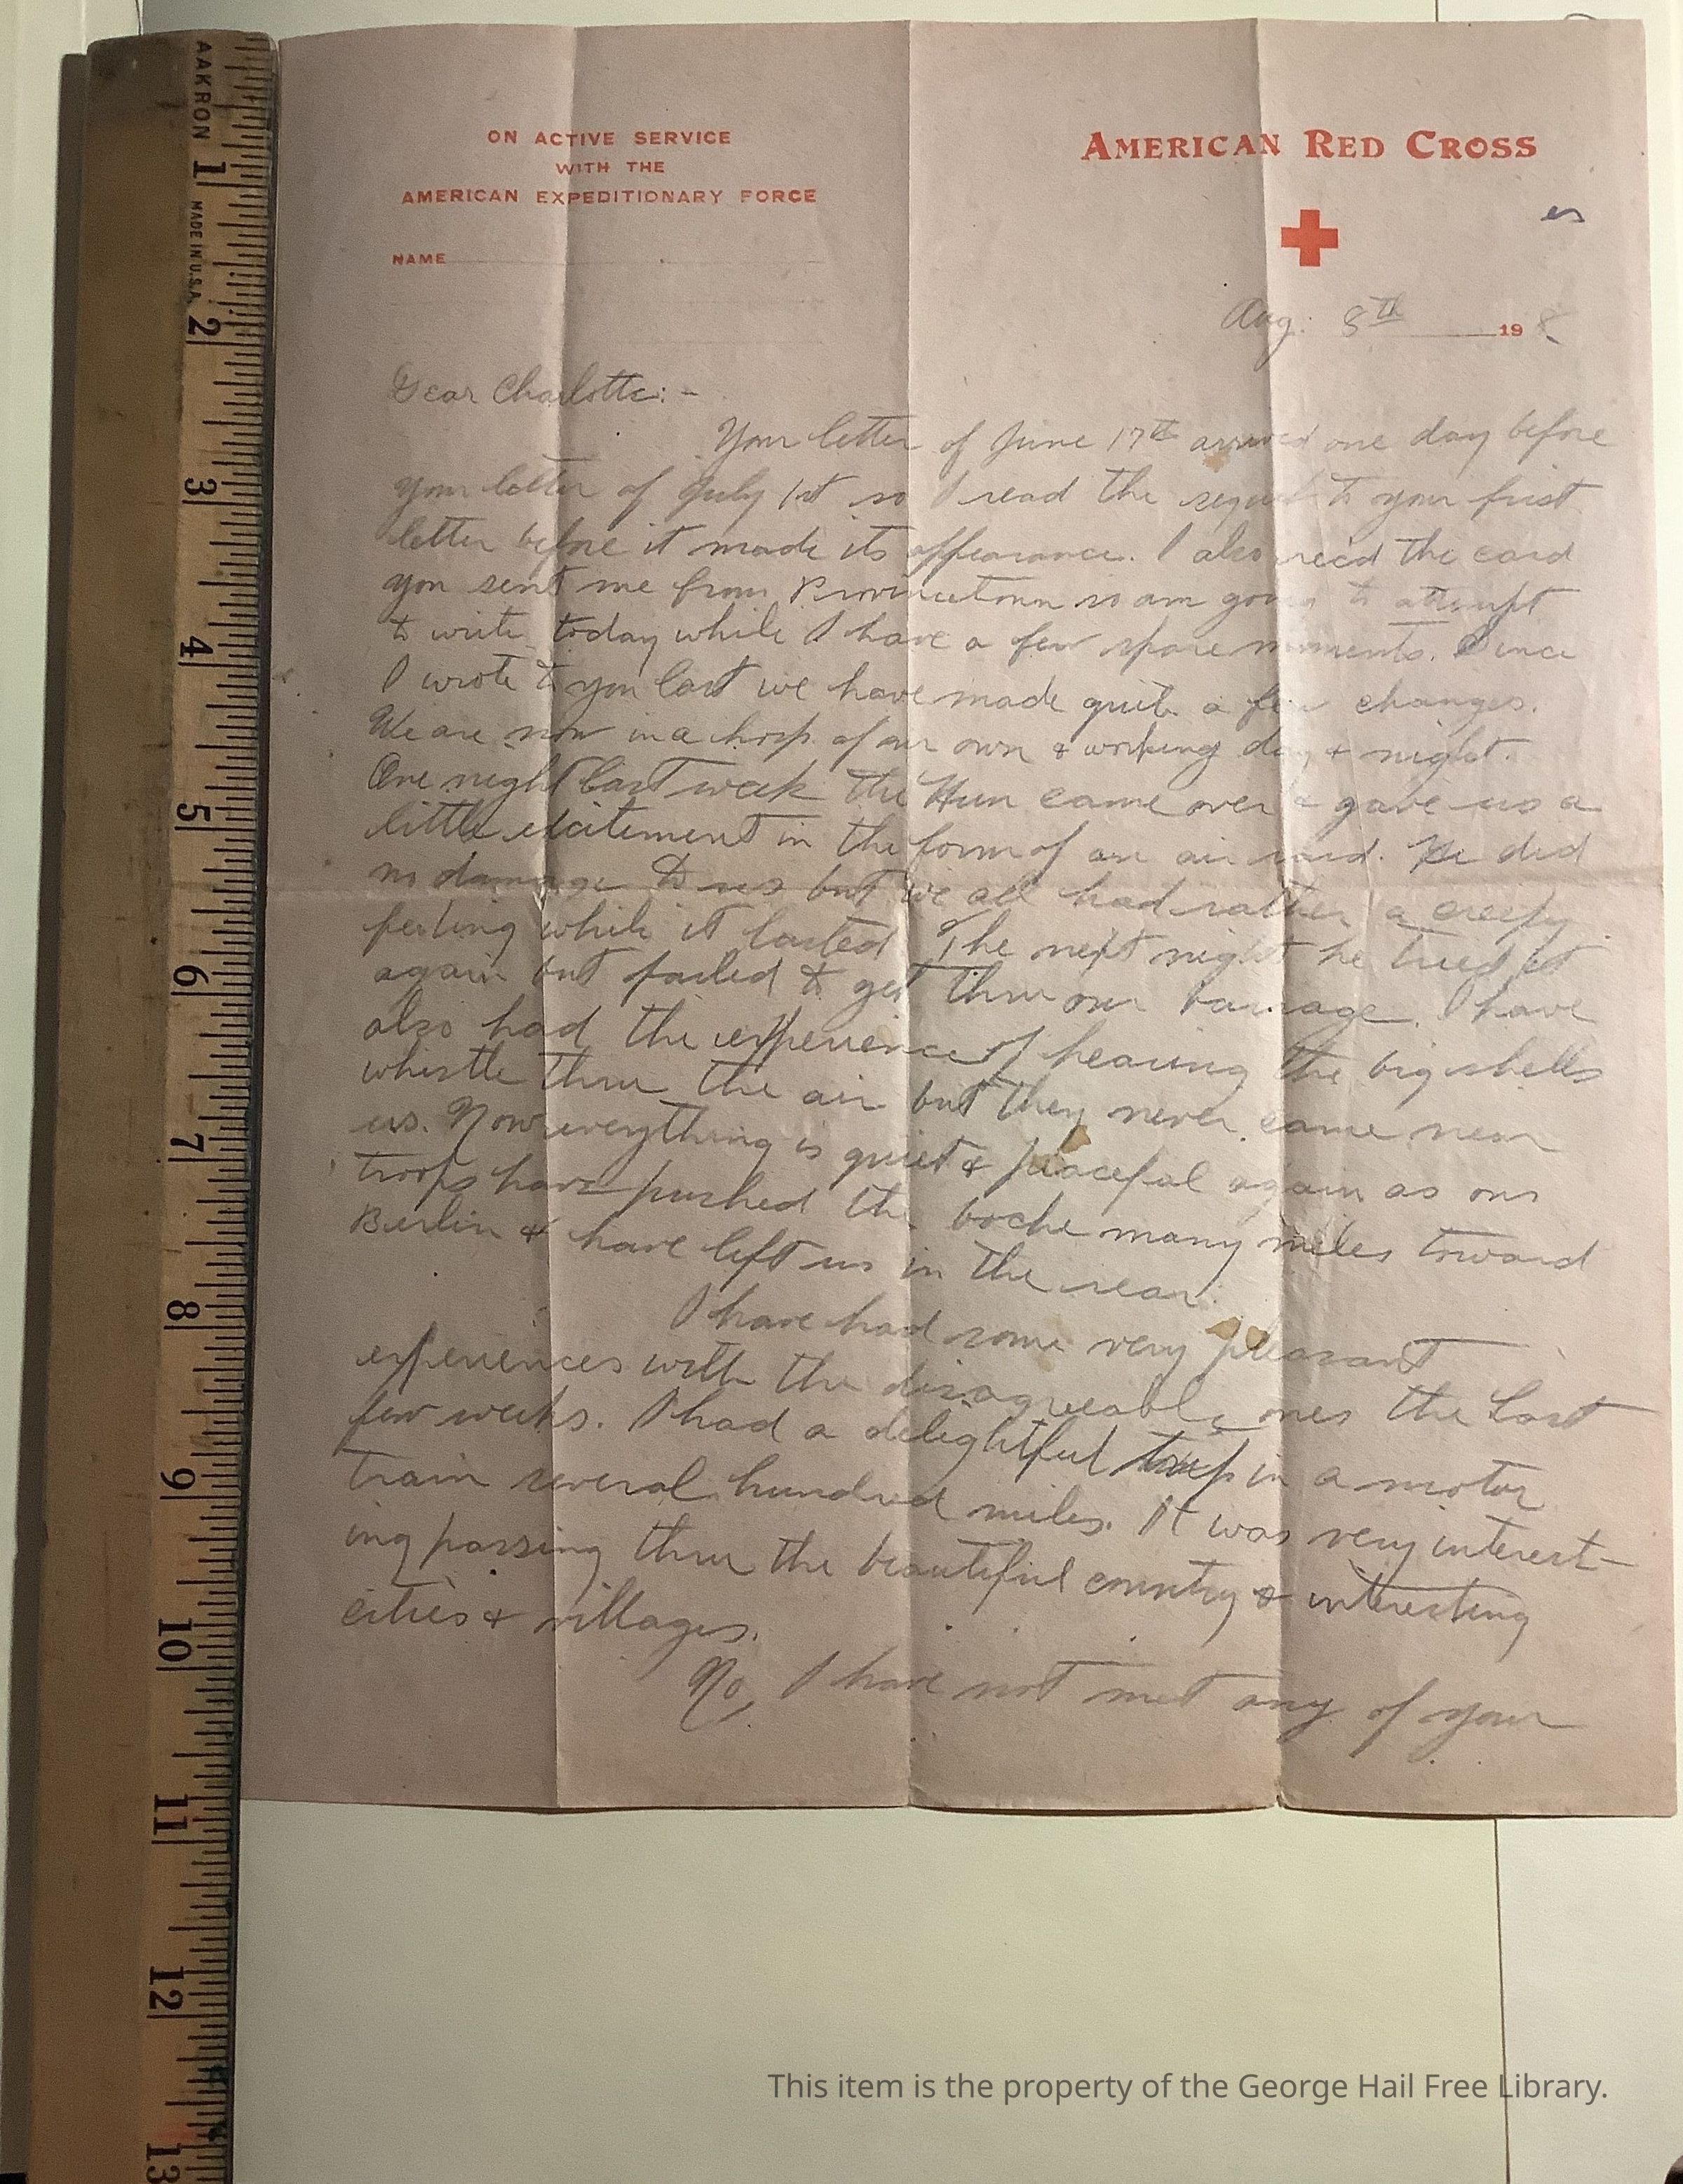 AAKRON
MADE IN U.S.A.
1
2
3
4
5
6
7
8
9
10
11
12
13
ON ACTIVE SERVICE
WITH THE
AMERICAN EXPEDITIONARY FORCE
NAME
AMERICAN RED CROSS
Aug: 8th 198
Dear Charlotte:-
Your letter of June 17th arrived one day before
your letter of July 1st so I read the sequel to your first
letter before it made its appearance. I also recd the card
you sent me from Provincetown so am going to attempt
to write today while I have a few spare moments. Since
I wrote to you last we have made quite a few changes.
We are now in a hosp. of our own & working day & night.
One night last week the Hun came over & gave us a
little excitement in the form of an air raid. He did
no damage to us but we all had rather a creepy
feeling while it lasted. The next night he tried it
again but failed to get thru our barrage. I have
also had the experience of hearing the big shells
whistle thru the air but they never came near
us. Now everything is quiet & peaceful again as our
troops have pushed the boche many miles toward
Berlin & have left us in the rear.
I have had some very pleasant
experiences with the disagreeable ones the last
few weeks. I had a delightful trip in a motor
train several hundred miles. It was very interest-
ing passing thru the beautiful country & interesting
cities & villages.
No, I have not met any of your
This item is the property of the George Hail Free Library.